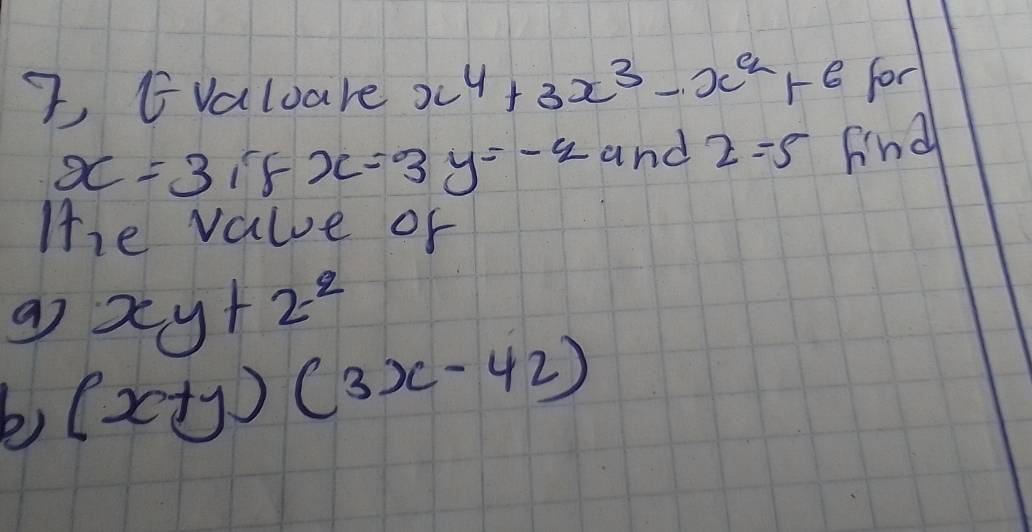 7, Evaluate x⁴ + 3x³ - x² + 6 for
x = 3 if x = 3 y = -2 and z = 5 find
the value of
a) xy + z²
b) (x+y) (3x - 4z)